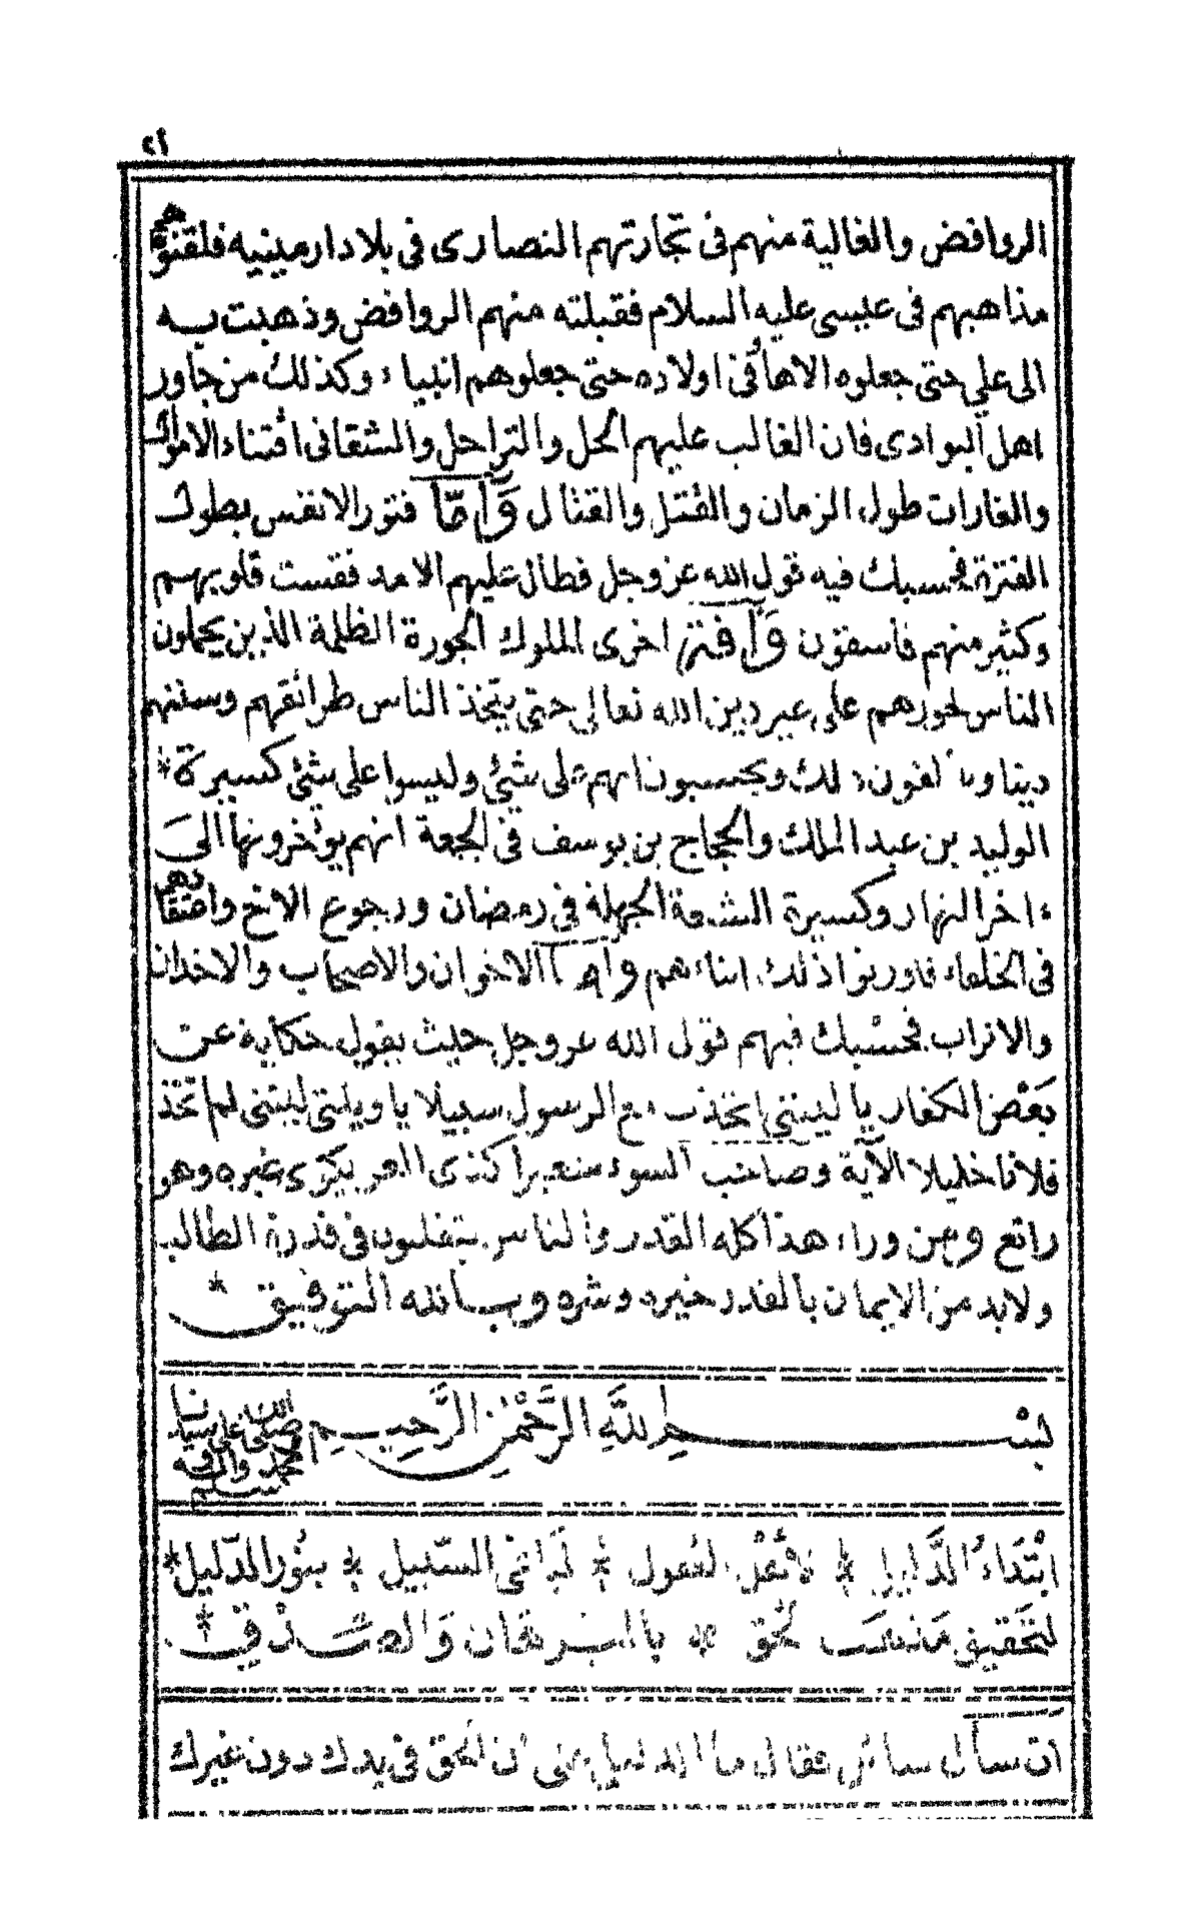 ٢١
الروافض والغالية منهم فى تجارتهم النصارى فى بلاد ارمينيه فلقنوهم
مذاهبهم فى عيسى عليه السلام فقبلته منهم الروافض وذهبت به
الى علي حتى جعلوه الاها فى اولاده حتى جعلوهم انبياء وكذلك من جاور
اهل البوادى فان الغالب عليهم الحل والتراحل والشقا فى اقتناء الاموال
والغارات طول الزمان والقتل والقتال وأمّا فتور الانفس بطول
الفترة فحسبك فيه قول الله عز وجل فطال عليهم الامد فقست قلوبهم
وكثير منهم فاسقون وآفة اخرى الملوك الجورة الظلمة الذين يحملون
الناس لجورهم على غير دين الله تعالى حتى يتخذ الناس طرائقهم وسننهم
دينا ويألفون ذلك ويحسبون انهم على شئ وليسوا على شئ كسيرة *
الوليد بن عبد الملك والحجاج بن يوسف فى الجمعة انهم يؤخرونها الى
ءاخر النهار وكسيرة الشيعة الجهلة فى رمضان ورجوع الاخ واعتقادهم
فى الخلفاء فاورثوا ذلك ابناءهم وأما الاخوان والاصحاب والاخدان
والاتراب فحسبك فيهم قول الله عز وجل حيث يقول حكاية عن
بعض الكفار يا ليتنى اتخذت مع الرسول سبيلا يا ويلتى ليتنى لم اتخذ
فلانا خليلا الآية وصاحب السوء كذى العر يكوى غيره وهو
راتع ومن وراء هذا كله القدر والناس يتقلبون فى قدرة الطالب
ولابد من الايمان بالقدر خيره وشره وبالله التوفيق *
بسم الله الرحمن الرحيم صلى الله على سيدنا محمد وآله وسلم
ابتداء الدليل * لأهل العقول * السبيل * بنور الدليل *
لتحقيق مذهب الحق * بالبرهان والصدق *
ان سأل سائل فقال ما الدليل على ان الحق فى يدك دون غيرك